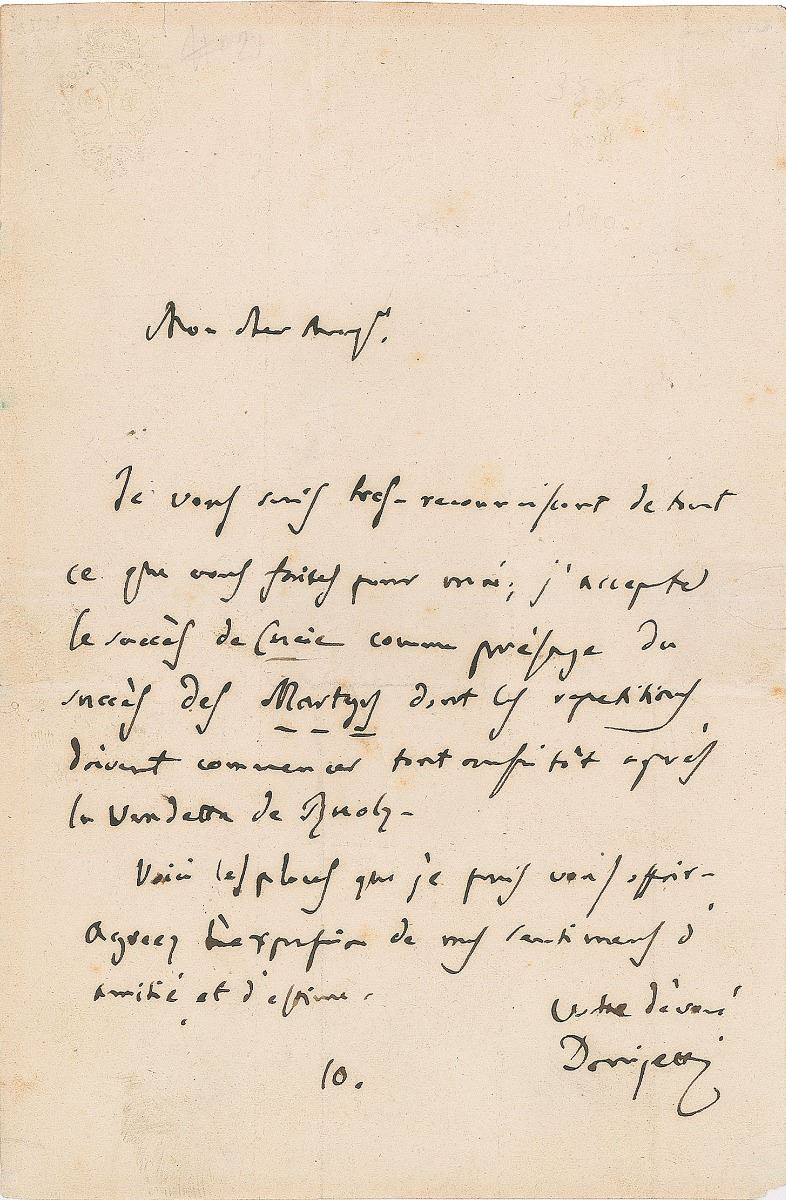 Mon cher
Je vous suis tres-reconnaissant de tout
ce que vous faites pour moi; j'accepte
le succès de Lucie comme présage du
succès des Martyrs dont les repetitions
doivent commencer tout aussitôt après
la Vendetta de Ruolz-
Voici les places que je puis vous offrir-
Agreez l'expression de mes sentimens d'
amitié et d'estime.
Votre dévoué
Donizetti
10.